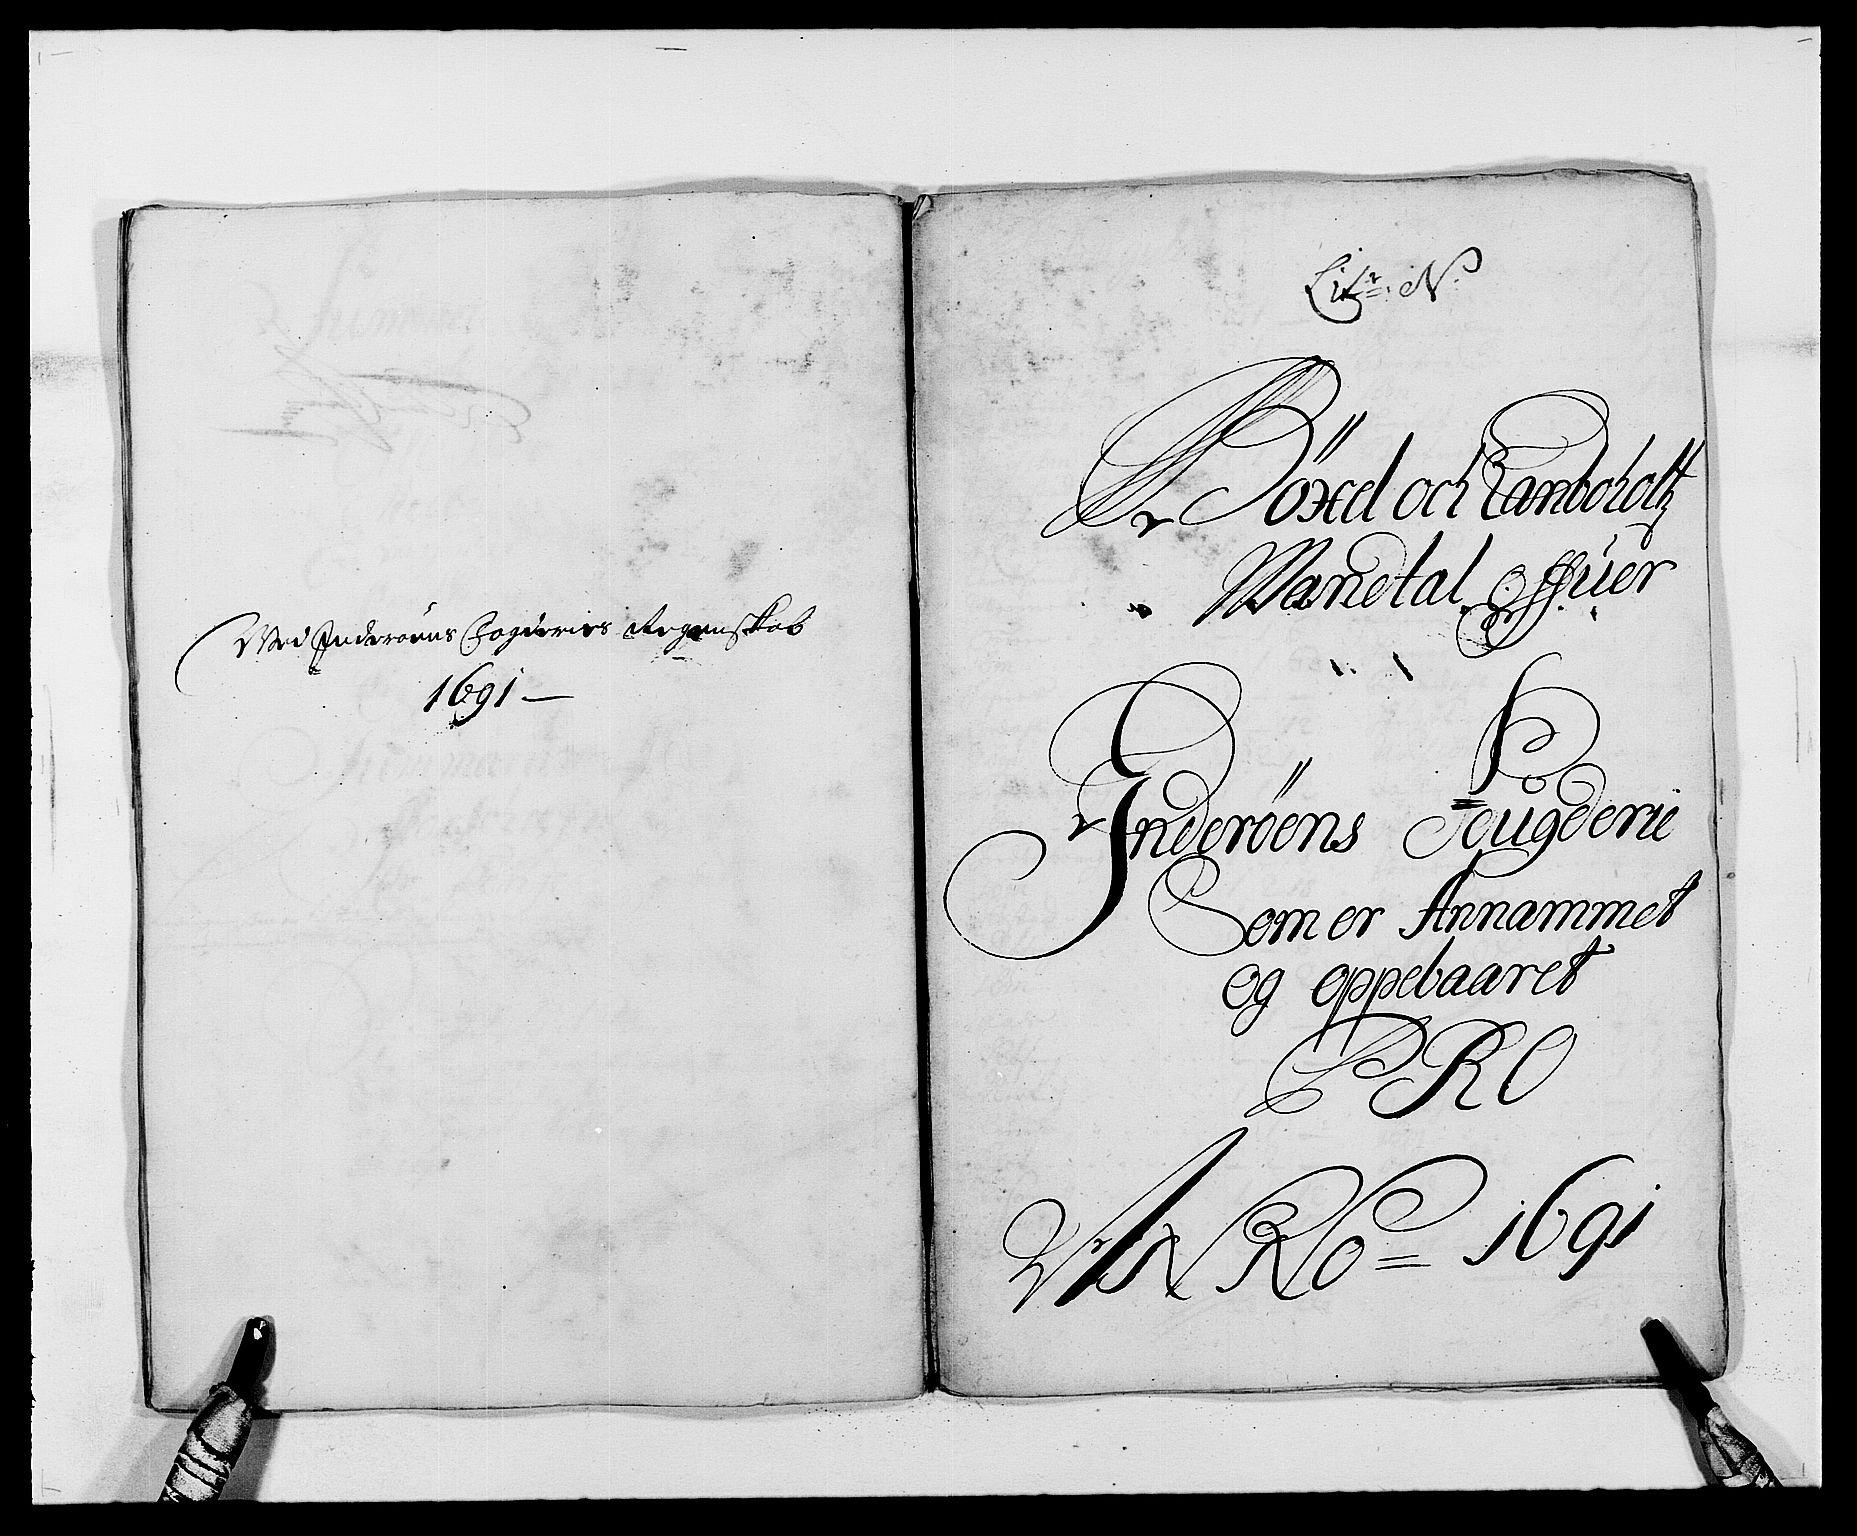 Ved Inderøens Fogderies Regenskab
1691
Litr: N.
Böxel och Landboholtz
Mandtal Offuer
Inderöens Fougderie
Som er Annammet
og oppebaaret
PRO
ANNO 1691